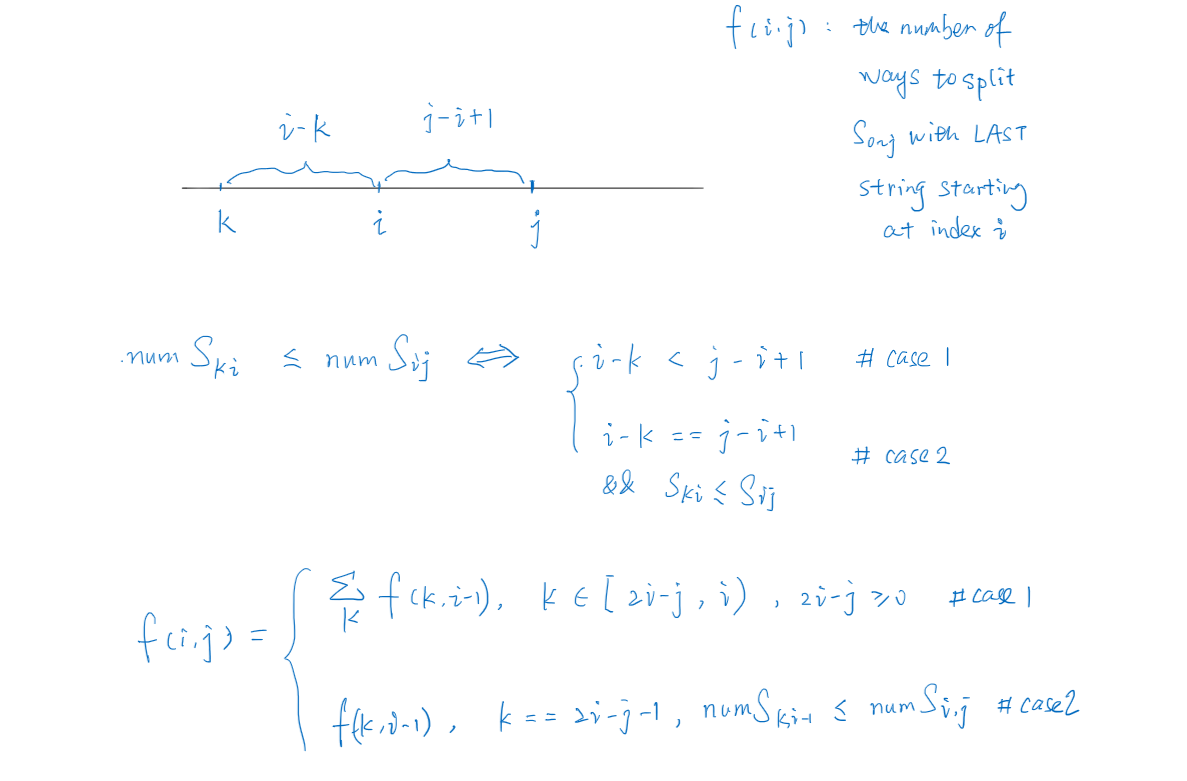 f(i,j) : the number of
ways to split
S0~j with LAST
string starting
at index i
i-k
j-i+1
k
i
j
num Ski ≤ num Sij ⟺ { i-k < j-i+1 # case 1
i-k == j-i+1
&& Ski ≤ Sij # case 2
f(i,j) = { ∑k f(k,i-1), k ∈ [2i-j, i), 2i-j ≥ 0 # case 1
f(k,i-1), k == 2i-j-1, num Sk,i-1 ≤ num Si,j # case 2